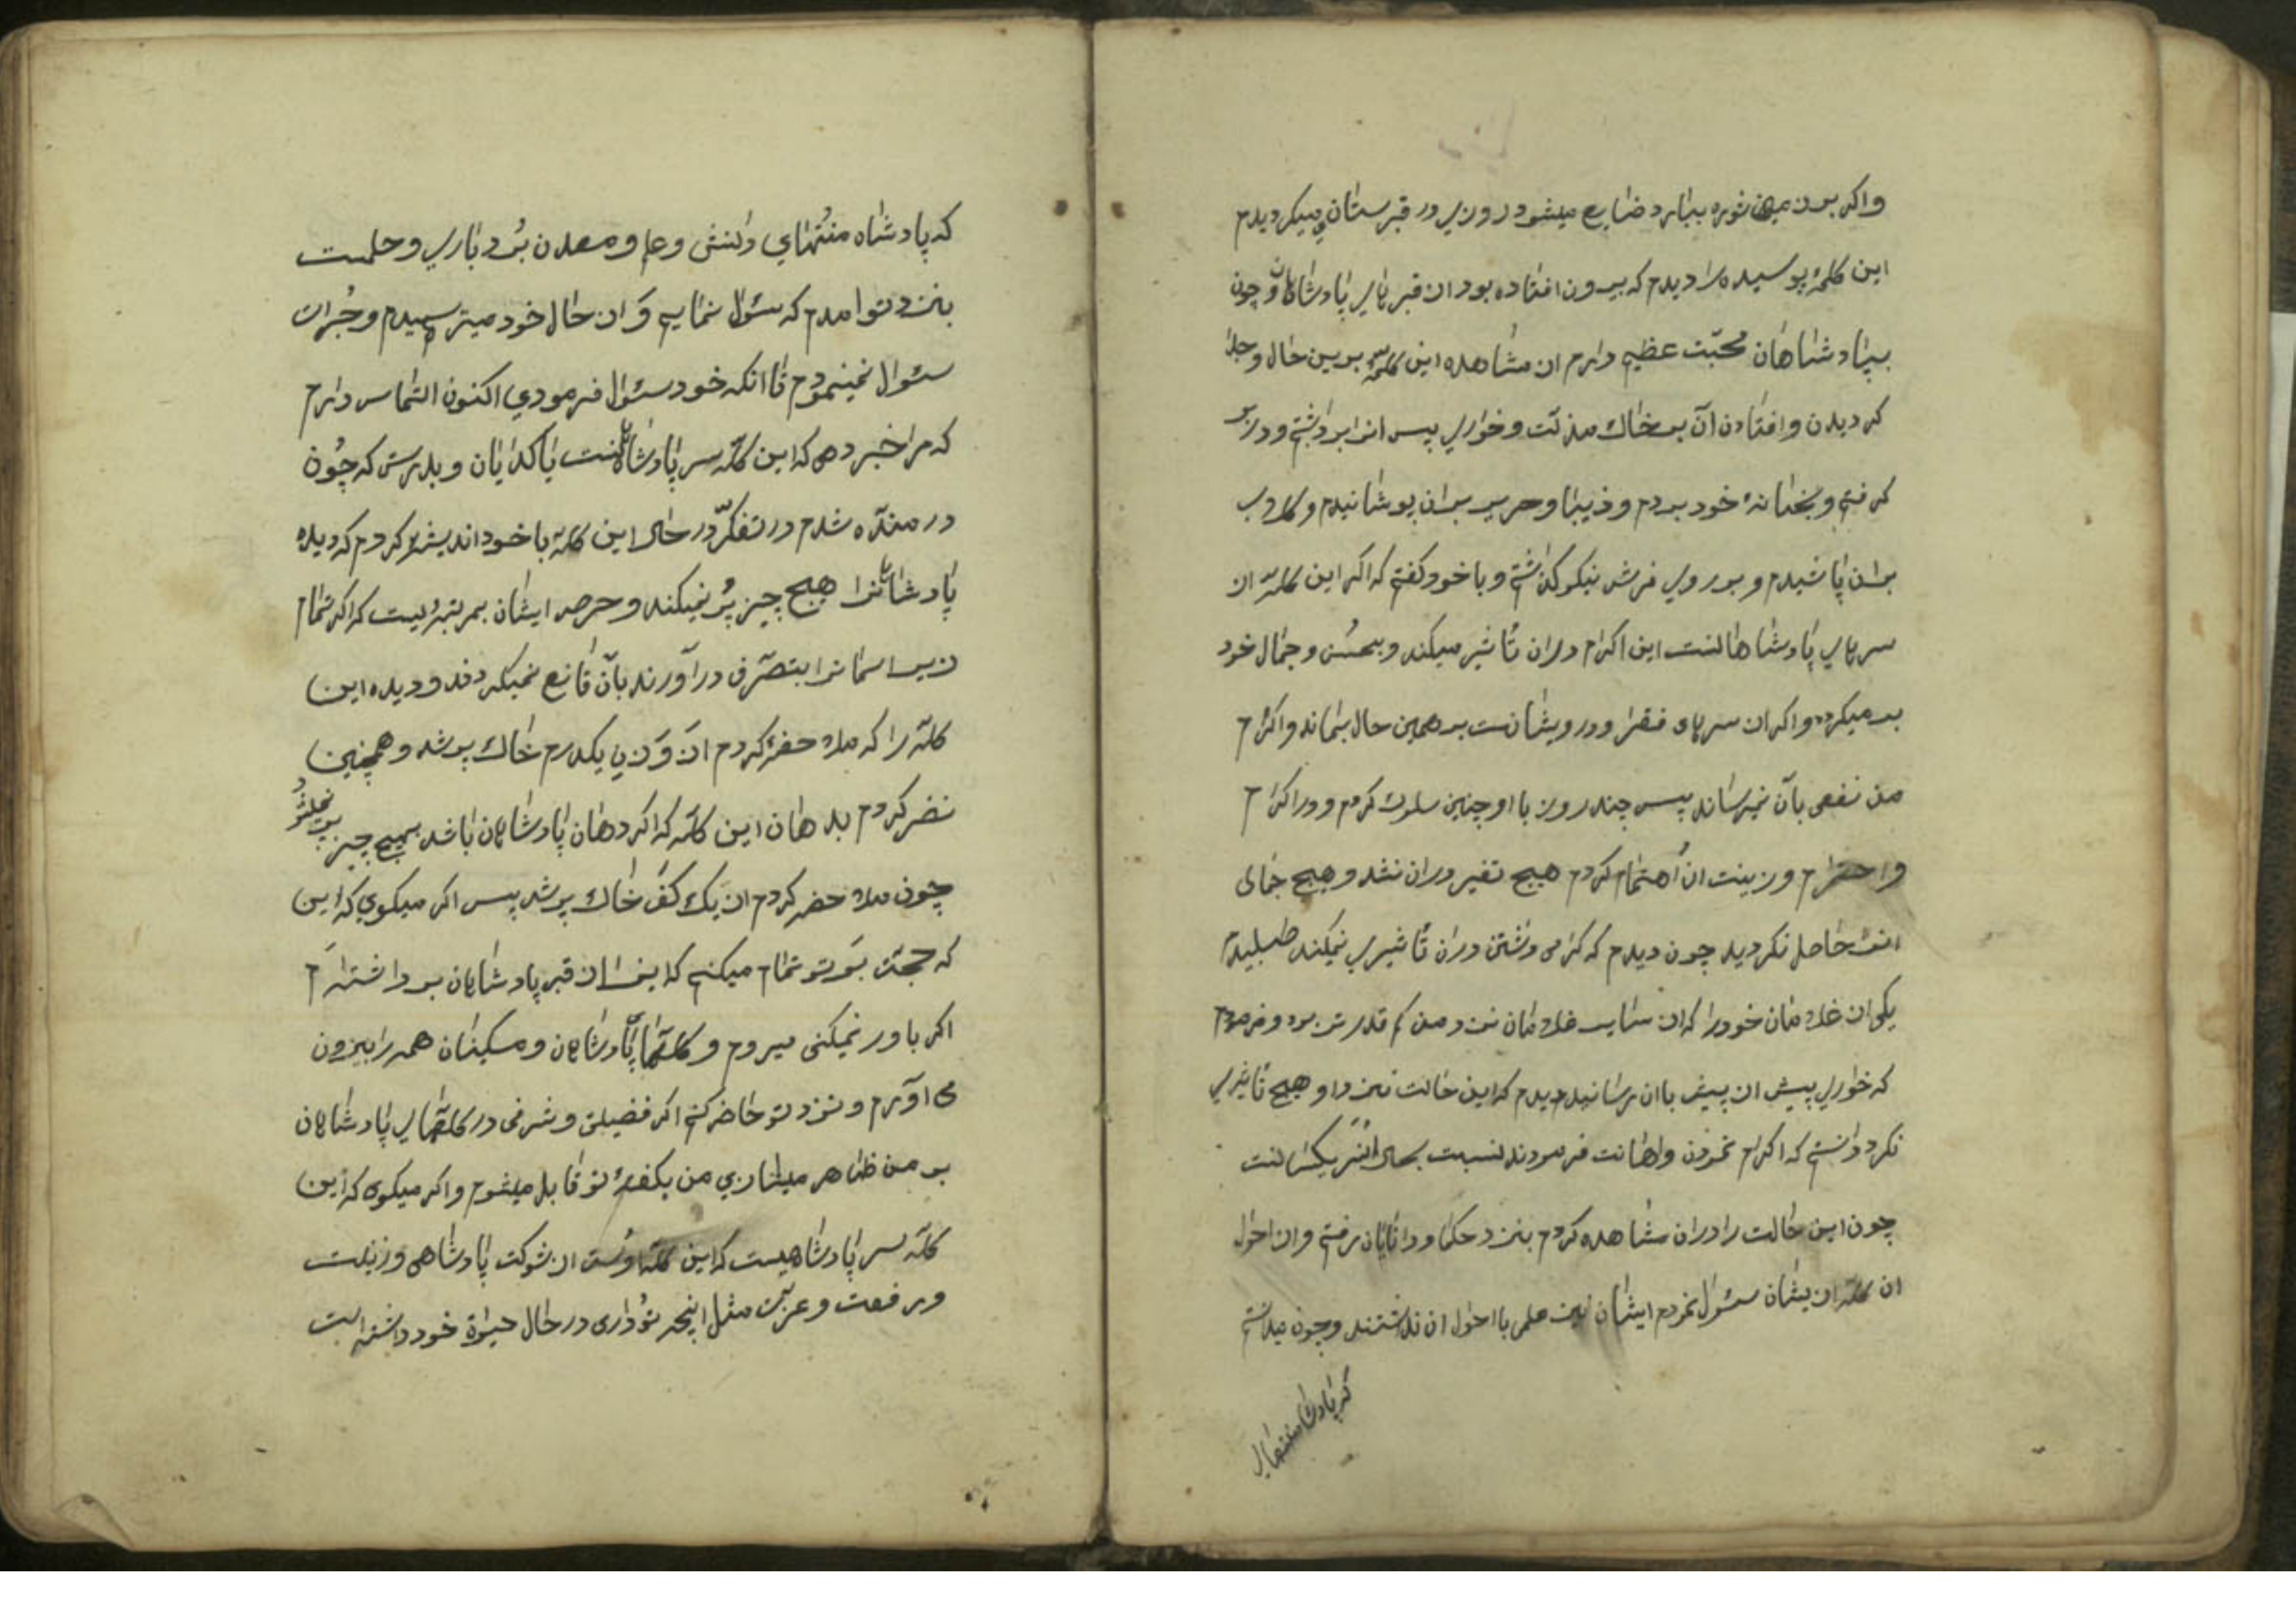 واکر بر زمین شوره ببارد ضایع میشود روزی در قبرستانی میکردیدم
این کلهٔ پوسیده را دیدم که بیرون افتاده بود از قبرهای پادشاهان و چون
بپادشاهان محبّت عظیم دارم از مشاهده این کله برین حال و جدا
کردیدن وافتادن آن بر خاك مذلت وخواری پس انرا برداشتم ودر بر
کرفتم وبخانهٔ خود بردم ودیبا وحریر بران پوشانیدم وکلاب
بران پاشیدم و بر روی فرش نیکو کذاشتم و با خود کفتم که اکر این کله از
سرهای پادشاهانست این اکرام دران تاثیر میکند وبحسن وجمال خود
بر میکردد واکر از سرهای فقرا ودرویشانست بر همین حال بماند واکرام
من نفعی بآن نمیرساند پس چند روز با او چنین سلوك کردم ودر اکرام
واحترام وزینت ان اهتمام کردم هیچ تغیر دران نشد وهیچ جمالی
انرا حاصل نکردید چون دیدم که کرامی داشتن دران تاثیری نمیکند طلبیدم
یکی از غلامان خود را که از سایر غلامان نزد من کم قدرتر بود وفرمودم
که خواری پیش از پیش باان رسانید دیدم که این حالت نیز در او هیچ تاثیری
نکرد دانستم که اکرام نمودن واهانت فرمودن نسبت بحال انسر یکسانست
چون این حالت را دران مشاهده کردم بنزد حکما ودانایان رفتم واز احوال
ان کله ازیشان سئوال نمودم ایشان نیز علمی بااحوال ان نداشتند وچون میدانستم
که پادشاه منتهای
که پادشاه منتهای دانش وعلم ومعدن بردباری وحلمست
بنزد تو امدم که سئوال نمایم وَ از حال خود میترسیدم وجُرات
سئوال نمینمودم تا انکه خود سئوال فرمودی اکنون التماس دارم
که مرا خبر دهی که این کله سر پادشاهانست یا کدایان وبدرستی که چون
درمنده شدم در تفکّر در حال این کله با خود اندیشه کردم که دیده
پادشاهانرا هیچ چیز پُر نمیکند وحرص ایشان بمرتبه ایست که اکر تمام
زیر اسمانرا بتصرّف درآورند بآن قانع نمیکردند ودیده این
کله را که ملاحظه کردم از وَزن یکدرم خاك پر شد وهمچنین
نضر کردم بدهان این کله که اکر دهان پادشاهان باشد بهیچ چیز پر نمیشود
چون ملاحضه کردم از یك کفّ خاك پر شد پس اکر میکوی که این
که حجت بَر تو تمام میکنم که اینرا از قبر پادشاهان برداشته‌ام
اکر باور نمیکنی میروم وکلّهای پادشاهان ومسکینان همه را بیرون
می اورم ونزد تو حاضر کنم اکر فضیلتی وشرفی در کلّهای پادشاهان
بر من ظاهر میسازی من بکفتهٔ تو قابل میشوم واکر میکوی که این
کله سر پادشاهیست که این کله اوست از شوکت پادشاهی وزینت
ورفعت وعزت مثل اینچه تو داری در حال حیوة خود داشته است